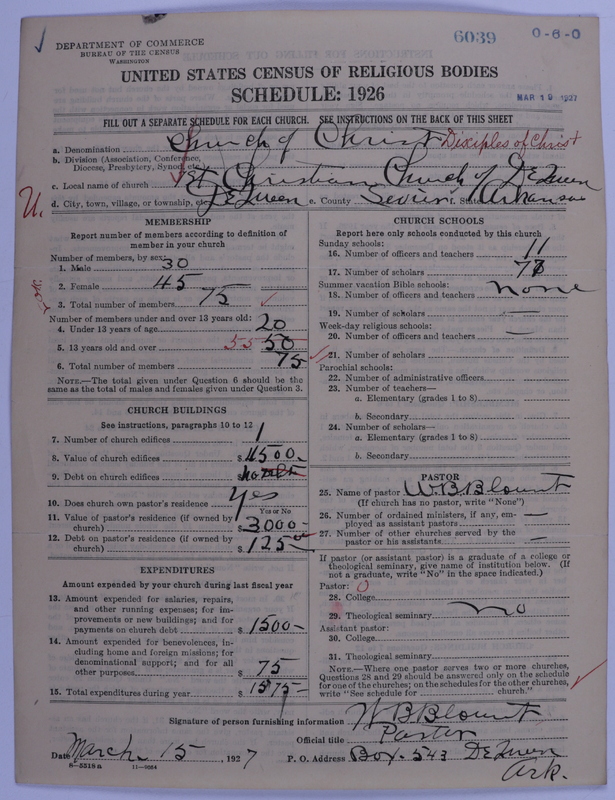 6039
0-6-0
DEPARTMENT OF COMMERCE
BUREAU OF THE CENSUS
WASHINGTON
UNITED STATES CENSUS OF RELIGIOUS BODIES
SCHEDULE: 1926
MAR 19 1927
FILL OUT A SEPARATE SCHEDULE FOR EACH CHURCH. SEE INSTRUCTIONS ON THE BACK OF THIS SHEET
a. Denomination Church of Christ Disciples of Christ
b. Division (Association, Conference, Diocese, Presbytery, Synod, etc.)
c. Local name of church 1st Christian Church of DeQueen
d. City, town, village, or township, etc. DeQueen e. County Sevier f. State Arkansas
U.
MEMBERSHIP
Report number of members according to definition of member in your church
Number of members, by sex:
1. Male 30
2. Female 45
3. Total number of members 75
Number of members under and over 13 years old:
4. Under 13 years of age 20
5. 13 years old and over 55 50
6. Total number of members 75
NOTE.—The total given under Question 6 should be the same as the total of males and females given under Question 3.
CHURCH BUILDINGS
See instructions, paragraphs 10 to 12
7. Number of church edifices 1
8. Value of church edifices $4500-
9. Debt on church edifices $
10. Does church own pastor's residence Yes
Yes or No
11. Value of pastor's residence (if owned by church) $3000-
12. Debt on pastor's residence (if owned by church) $125
EXPENDITURES
Amount expended by your church during last fiscal year
13. Amount expended for salaries, repairs, and other running expenses; for improvements or new buildings; and for payments on church debt $1500-
14. Amount expended for benevolences, including home and foreign missions; for denominational support; and for all other purposes $75
15. Total expenditures during year $1575-
CHURCH SCHOOLS
Report here only schools conducted by this church
Sunday schools:
16. Number of officers and teachers 11
17. Number of scholars
Summer vacation Bible schools:
18. Number of officers and teachers none
19. Number of scholars —
Week-day religious schools:
20. Number of officers and teachers —
21. Number of scholars
Parochial schools:
22. Number of administrative officers
23. Number of teachers—
a. Elementary (grades 1 to 8)
b. Secondary
24. Number of scholars—
a. Elementary (grades 1 to 8)
b. Secondary
PASTOR
25. Name of pastor W.B. Blount
(If church has no pastor, write "None")
26. Number of ordained ministers, if any, employed as assistant pastors —
27. Number of other churches served by the pastor or his assistants —
If pastor (or assistant pastor) is a graduate of a college or theological seminary, give name of institution below. (If not a graduate, write "No" in the space indicated.)
Pastor: 0
28. College
29. Theological seminary no
Assistant pastor:
30. College
31. Theological seminary
NOTE.—Where one pastor serves two or more churches, Questions 28 and 29 should be answered only on the schedule for one of the churches; on the schedules for the other churches, write "See schedule for church."
Signature of person furnishing information W B Blount
Official title Pastor
Date March 15, 1927 P. O. Address Box 543 DeQueen Ark.
8-5518 a 11-9064